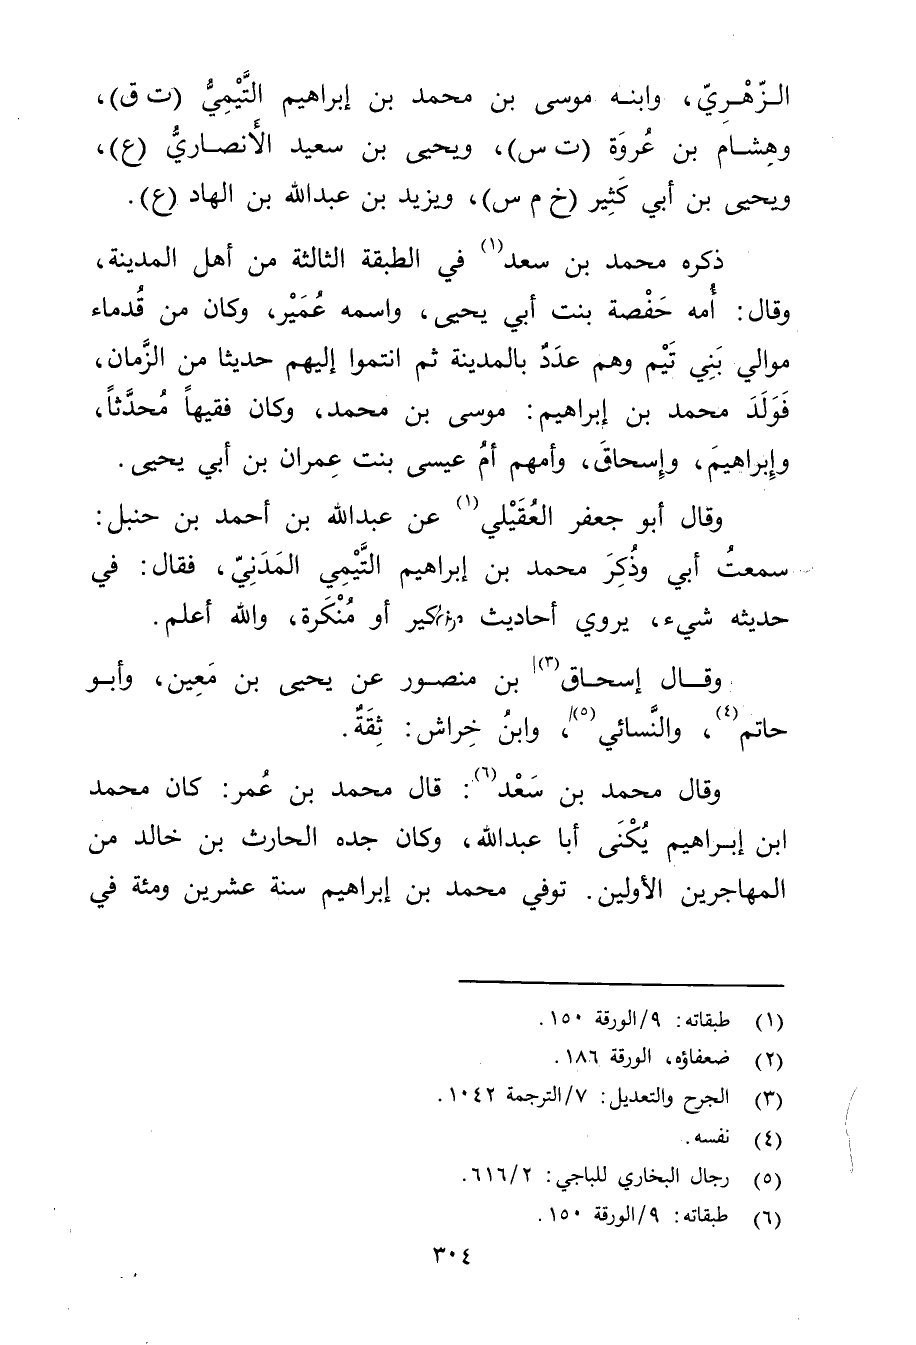 الـزّهْـرِيّ، وابنـه موسى بن محمد بن إبراهيم التَّيْمِيُّ (ت ق)،
وهِشـام بن عُروَة (ت س)، ويحيى بن سعيد الأَنصـاريُّ (ع)،
ويحيى بن أبي كَثِير (خ م س)، ويزيد بن عبدالله بن الهاد (ع).
ذكره محمد بن سعد(١) في الطبقة الثالثة من أهل المدينة،
وقال: أُمه حَفْصة بنت أبي يحيى، واسمه عُمَيْر، وكان من قُدماء
موالي بَنِي تَيْم وهم عدَدٌ بالمدينة ثم انتموا إليهم حديثا من الزَّمان،
فَوَلَدَ محمد بن إبراهيم: موسى بن محمد، وكان فقيهاً مُحدَّثاً،
وإِبراهيمَ، وإِسحاقَ، وأمهم أمُ عيسى بنت عِمران بن أبي يحيى.
وقال أبو جعفر العُقَيْلي(١) عن عبدالله بن أحمد بن حنبل:
سمعتُ أبي وذُكِرَ محمد بن إبراهيم التَّيْمِي المَدَنِيّ، فقال: في
حديثه شيء، يروي أحاديث أو مُنْكَرة، والله أعلم.
وقـــال إسحـاق(٣) بن منصـور عن يحيى بن مَعِين، وأبـو
حاتم(٤)، والنَّسائي(٥)، وابنُ خِراش: ثِقَةٌ.
وقال محمد بن سَعْد(٦): قال محمد بن عُمر: كان محمد
ابن إبـراهيم يُكْنَى أبا عبدالله، وكان جده الحارث بن خالد من
المهاجرين الأولين. توفي محمد بن إبراهيم سنة عشرين ومئة في
(١) طبقاته: ٩/الورقة ١٥٠.
(٢) ضعفاؤه، الورقة ١٨٦.
(٣) الجرح والتعديل: ٧/الترجمة ١٠٤٢.
(٤) نفسه.
(٥) رجال البخاري للباجي: ٦١٦/٢.
(٦) طبقاته: ٩/الورقة ١٥٠.
٣٠٤